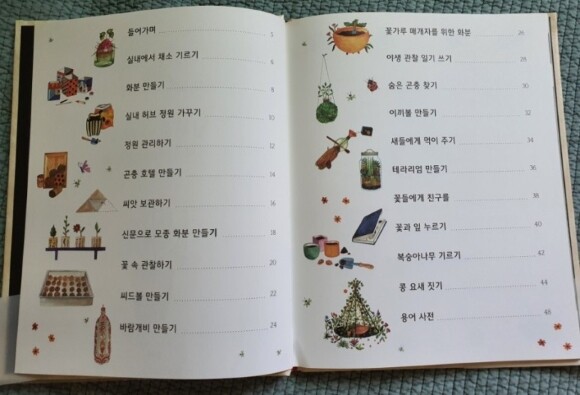 들어가며 5
실내에서 채소 기르기 6
화분 만들기 8
실내 허브 정원 가꾸기 10
정원 관리하기 12
곤충 호텔 만들기 14
씨앗 보관하기 16
신문으로 모종 화분 만들기 18
꽃 속 관찰하기 20
씨드볼 만들기 22
바람개비 만들기 24
꽃가루 매개자를 위한 화분 26
야생 관찰 일기 쓰기 28
숨은 곤충 찾기 30
이끼볼 만들기 32
새들에게 먹이 주기 34
테라리엄 만들기 36
꽃들에게 친구를 38
꽃과 잎 누르기 40
복숭아나무 기르기 42
콩 요새 짓기 44
용어 사전 46